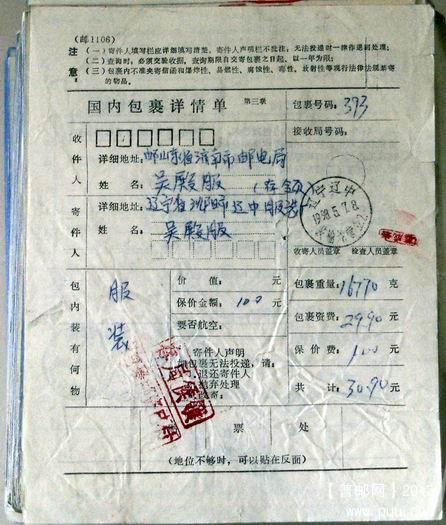 (邮1106)
注意：
(一)寄件人填写栏应详细填写清楚，寄件人声明栏不批注，无法投递时一律作退回处理；
(二)查询时，必须交验收据，查询期限自交寄包裹之日起，以一年为限；
(三)包裹内不准夹寄信函和爆炸性、易燃性、腐蚀性、毒性、放射性等现行法律法规禁寄的物品。
国内包裹详情单 第三章
包裹号码：393
接收局号码：
收件人
详细地址：邮山东省济南市邮电局
姓名：吴殿服
寄件人
详细地址：辽宁省沈阳市辽中服装
姓名：吴殿服
辽宁辽中
1998.5.7.8
收寄人员盖章 检查人员盖章
包内装有何物
服装
价值： 元
保价金额：100 元
要否航空：
寄件人声明
如包裹无法投递，请：
退还寄件人
抛弃处理
改寄：
包裹重量：16770 克
包裹资费：29.90 元
保价费：1.00 元
共计：30.90 元
票处
(地位不够时，可以贴在反面)
【普邮网】2012
www.puyi.cn